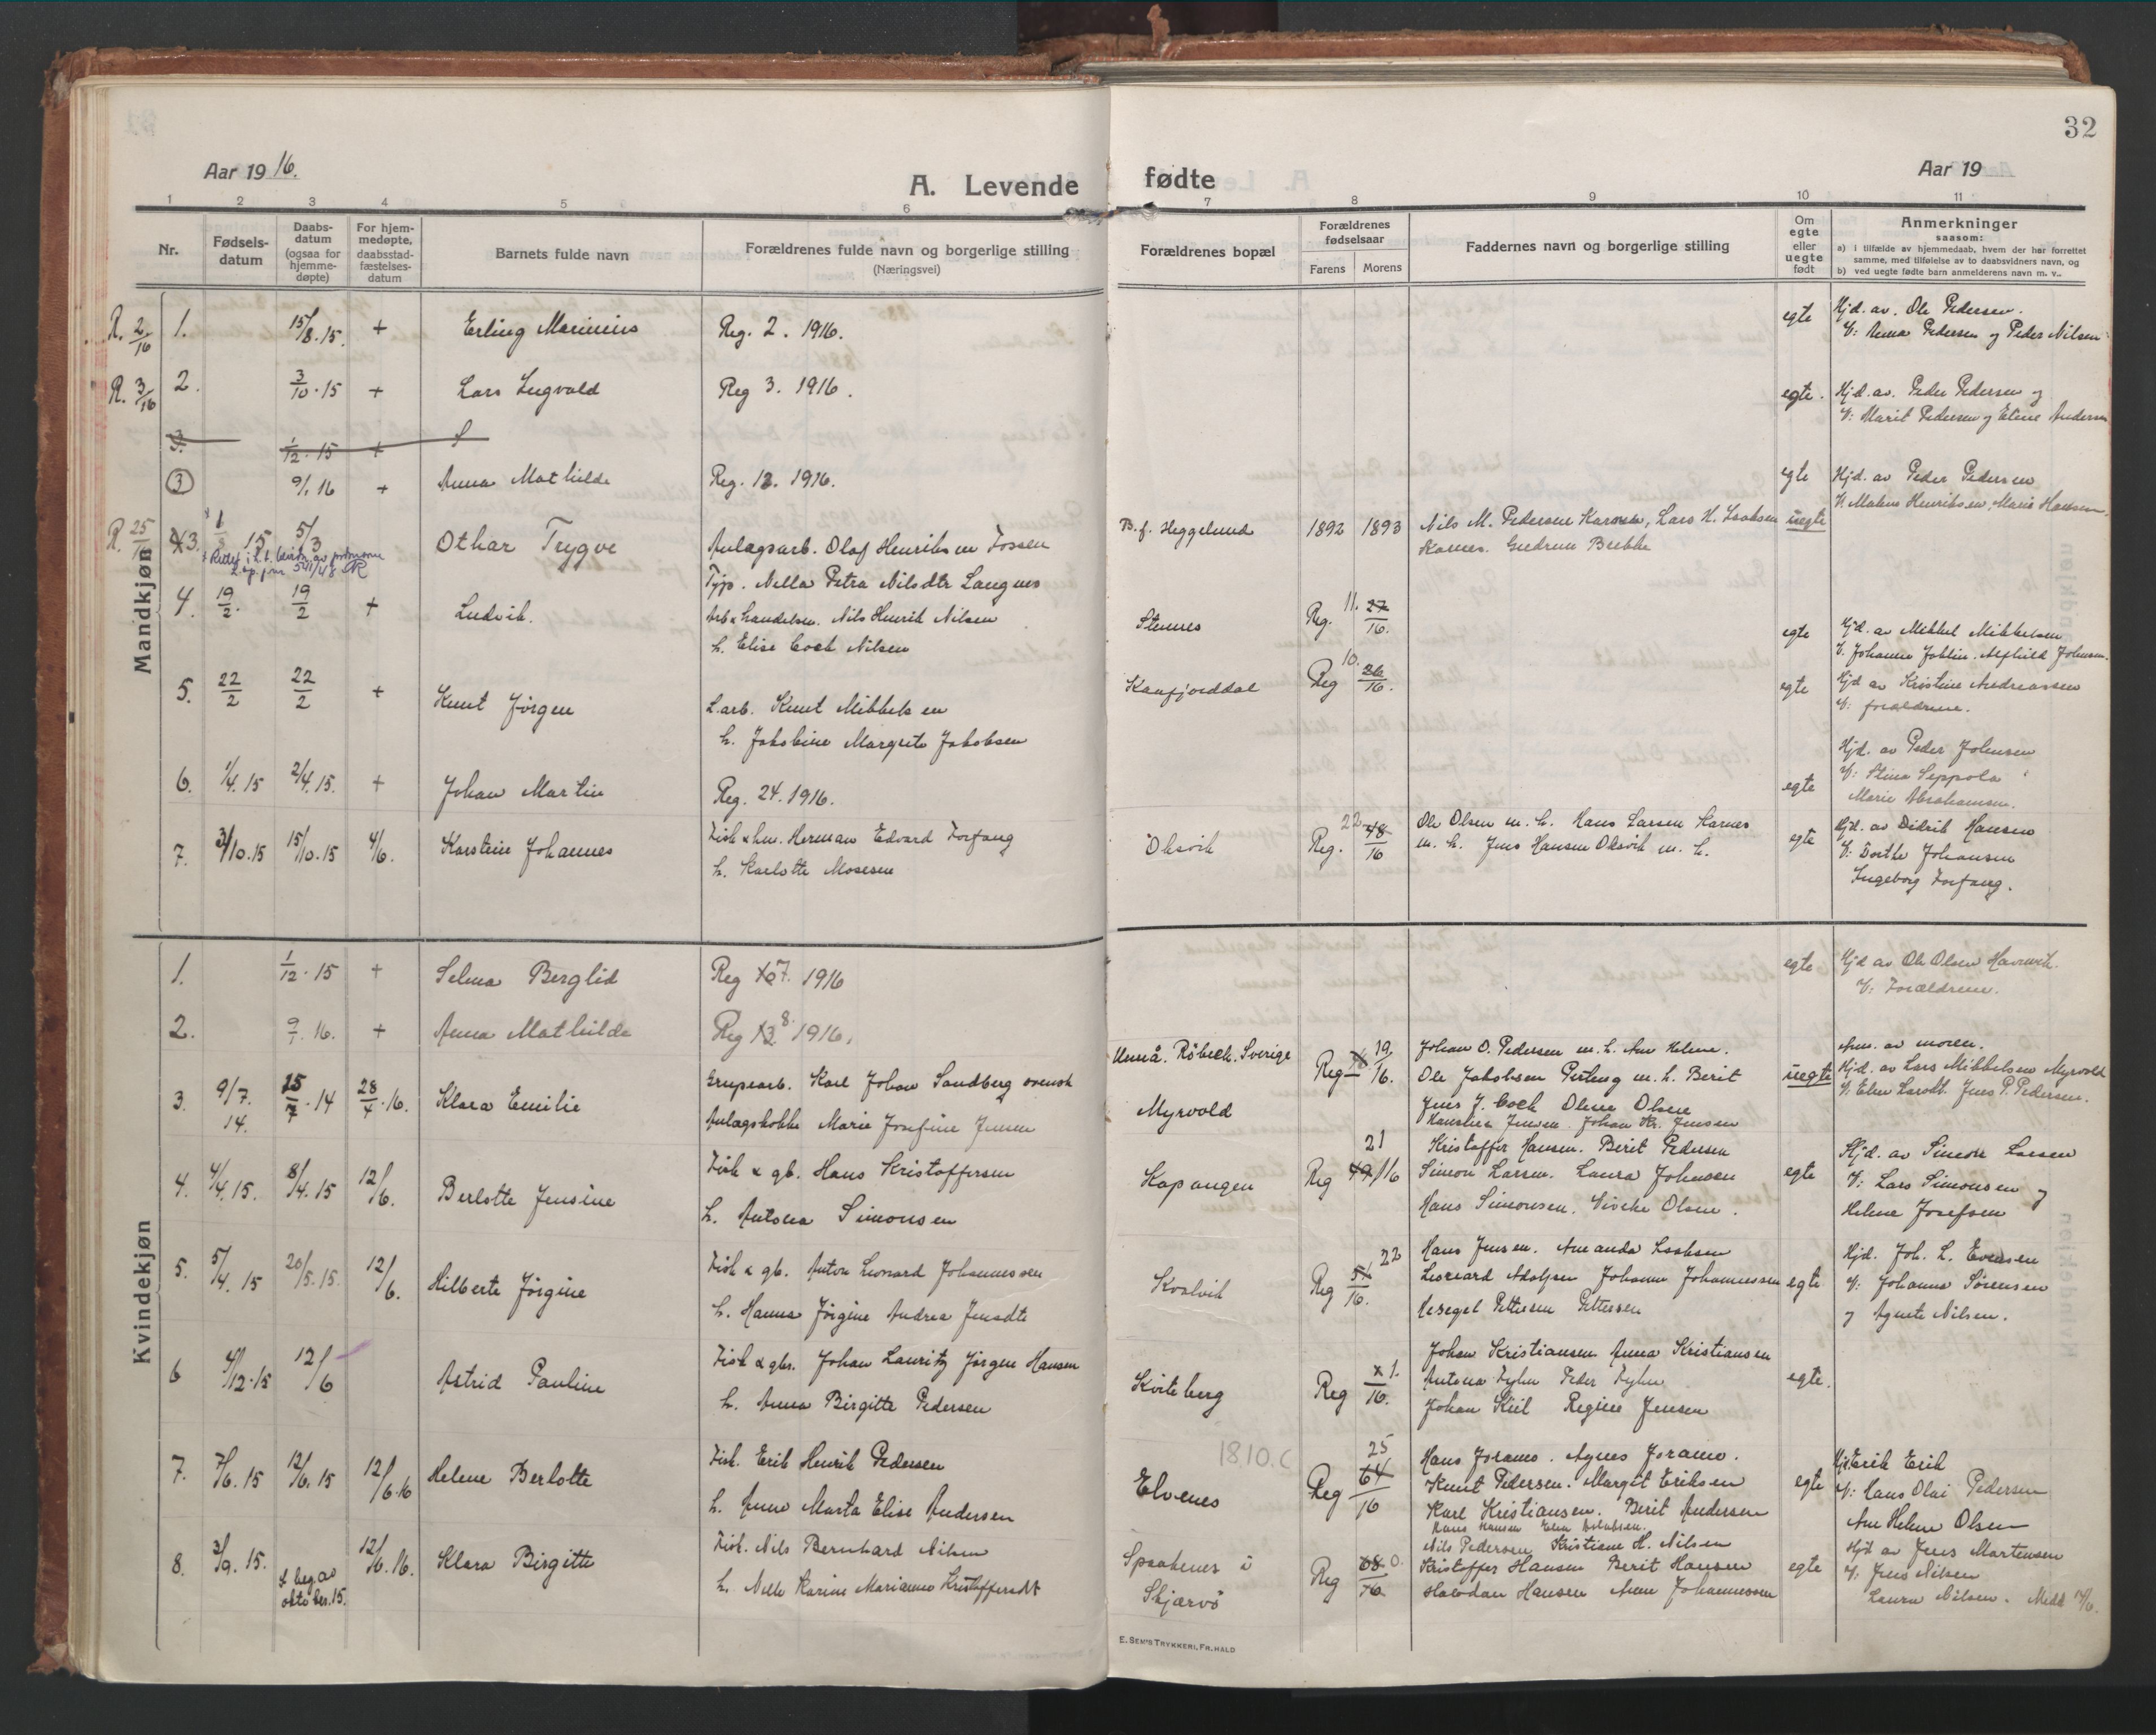 32
Aar 1916.
A. Levende fødte
Aar 19
1 2 3 4 5 6 7 8 9 10 11
Nr.
Fødsels-
datum
Daabs-
datum
(ogsaa for
hjemme-
døpte)
For hjem-
medøpte,
daabsstad-
fæstelses-
datum
Barnets fulde navn
Forældrenes fulde navn og borgerlige stilling
(Næringsvei)
Forældrenes bopæl
Forældrenes
fødselsaar
Farens Morens
Faddernes navn og borgerlige stilling
Om
egte
eller
uegte
født
Anmerkninger
saasom:
a) i tilfælde av hjemmedaab, hvem der har forrettet
samme, med tilføielse av to daabsvidners navn, og
b) ved uegte fødte barn anmelderens navn m. v..
Mandkjøn
R. 2/16 1. 15/8.15. + Erling Marinius Reg. 2. 1916. egte Hjd. av. Ole Pedersen.
V: Anna Pedersen og Peder Nilsen
R. 3/16 2. 3/10.15 + Lars Ingvald Reg 3. 1916. egte. Hjd. av. Peder Pedersen og
V: Marit Pedersen og Eline Andersen
3. 1/12.15 +
3 9/1 16 + Anna Mathilde Reg. 12. 1916. egte Hjd. av Peder Pedersen
V. Malene Henriksen, Marie Hansen.
R. 25/16 3. 1/8 15 5/3 Othar Trygve Anlagsarb. Olaf Henriksen Fossen B.f. Heggelund 1892 1893 Nils M. Pedersen Karnes, Lars H. Isaksen uegte
Tjp. Nella Petra Nilsdtr Langnes Karnes. Gudrun Brekke
4. 19/2. 19/2 + Ludvik. Arb & handelsm. Nils Henrik Nilsen Stennes Reg. 11. 27/16. egte Hjd. av Mikkel Mikkelsen
h. Elise Coch Nilsen V. Johanne Johnsen.
5. 22/2 22/2 + Knut Jørgen L.arb. Knut Mikkelsen Kaafjorddal Reg 10. 26/16. egte Hjd av Kristine Andreassen
h. Jakobine Margrete Jakobsen V: forældrene.
6. 1/4.15 2/4.15. + Johan Martin Reg. 24.1916. egte Hjd. av Peder Johnsen
V: Stina Seppola
Marie Abrahamsen.
7. 3/10.15 15/10.15 4/6. Karstein Johannes Fisk & hm. Herman Edvard Forfang Oksvik Reg. 22 48/16 Ole Olsen m. h. Hans Larsen Karnes egte Hjd. av Didrik Hansen
h. Karlotte Mosesen m. h. Jens Hansen Oksvik m. h. V: Dorthe Johansen
Ingeborg Forfang.
Kvindekjøn
1. 1/12.15 + Selma Berglid Reg 7. 1916 egte Hjd av Ole Olsen Havnnes.
V: Forældrene.
2. 9/1.16. + Anna Mathilde Reg 13 8. 1916.
3. 9/7. 14. 25/7.14 28/4.16. Klara Emilie Grupearb. Karl Johan Sandberg svensk Umeå. Røbeck. Sverige Reg 19/16. Johan O. Pedersen m. h. Ane Helene. uegte Anm. av moren.
Anlagskokke Marie Josefine Jensen Myrvold Ole Jakobsen m. h. Berit Hjd. av Lars Mikkelsen Myrvold
Jens J. Coch Oline Olsen V. Elen Larsdt. Jens P. Pedersen.
Johan Kr. Jensen
4. 4/4.15. 8/4.15 12/6. Berlotte Jensine Fisk & gb. Hans Kristoffersen Kopangen Reg 21 49/16 Kristoffer Hansen. Berit Pedersen egte Hjd. av Simon Larsen
h. Antona Simonsen Simon Larsen. Laura Johansen V: Lars Simonsen og
Hans Simonsen. Viveke Olsen. Helene Josefsen
5. 5/4.15 20/5.15. 12/6. Hilberte Jørgine Fisk & gb. Anton Leonard Johannessen Kvalvik Reg 22 51/16. Hans Jensen. Amanda Isaksen egte Hjd. Joh. L. Evensen
h. Hanna Jørgine Andrea Jensdtr Leonard Adolfsen Johanne Johannessen V: Johanne Sørensen
Pettersen Pettersen og Agnete Nilsen.
6 4/12.15 12/6 Astrid Pauline Fisk & gbr. Johan Lauritz Jørgen Hansen Kviteberg Reg 1./16. Johan Kristiansen Anna Kristiansen egte.
h. Anna Birgitte Pedersen Antona Fyhn Peder Fyhn
Johan Kiil Regine Jensen
7. 7/6.15 12/6.15 12/6.16 Helene Berlotte Fisk. Erik Henrik Pedersen 1810.C Elvenes Reg 25 64/16 Hans Joramo. Agnes Joramo. egte Hjd. Erik Erik
h. Anne Marta Elise Andersen Knut Pedersen. Margit Eriksen V: Hans Olai Pedersen
Karl Kristiansen. Berit Andersen Ane Helene Olsen
8. 3/9.15. beg. av oktober.15. 12/6.16. Klara Birgitte Fisk. Nils Bernhard Nilsen Spaakenes i Skjærvø Reg 68/16 Hans Hansen Elen Jakobsen. egte Hjd av Jens Martensen
h. Nella Karine Marianne Kristoffersdt Nils Pedersen Kristiane H. Nilsen V: Jens Nilsen
Kristoffer Hansen Berit Hansen Laura Nilsen. Medd 14/6.
Halvdan Hansen Anne Johannessen
E. SEM'S TRYKKERI, FR.HALD